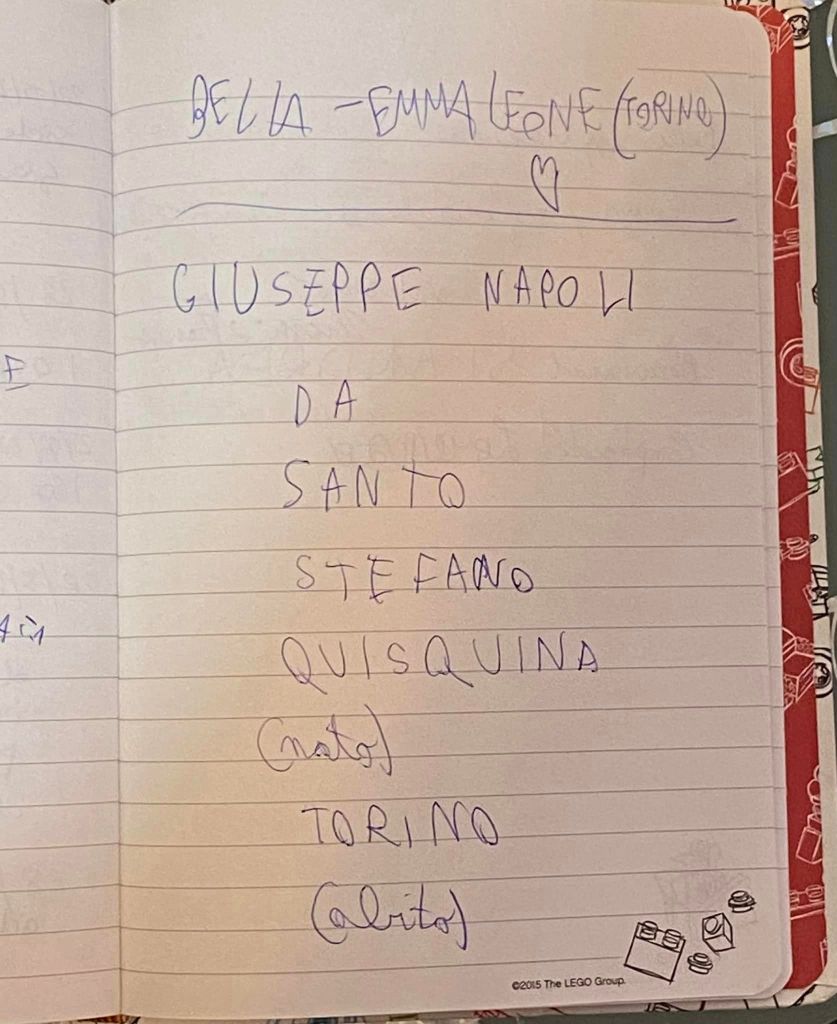 BELLA - EMMA LEONE (TORINO)
GIUSEPPE NAPOLI
DA
SANTO
STEFANO
QUISQUINA
(nato)
TORINO
(abito)
©2015 The LEGO Group.